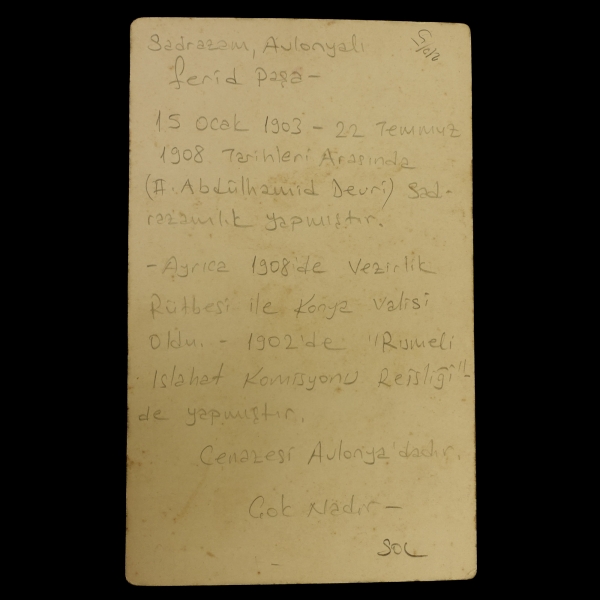 Sadrazam, Avlonyalı
Ferid Paşa-
15 Ocak 1903 - 22 Temmuz
1908 Tarihleri Arasında
(II. Abdülhamid Devri) Sad-
razamlık yapmıştır.
- Ayrıca 1908'de Vezirlik
Rütbesi ile Konya Valisi
Oldu. - 1902'de "Rumeli
Islahat Komisyonu Reisliği"-
de yapmıştır.
Cenazesi Avlonya'dadır.
Çok Nadir-